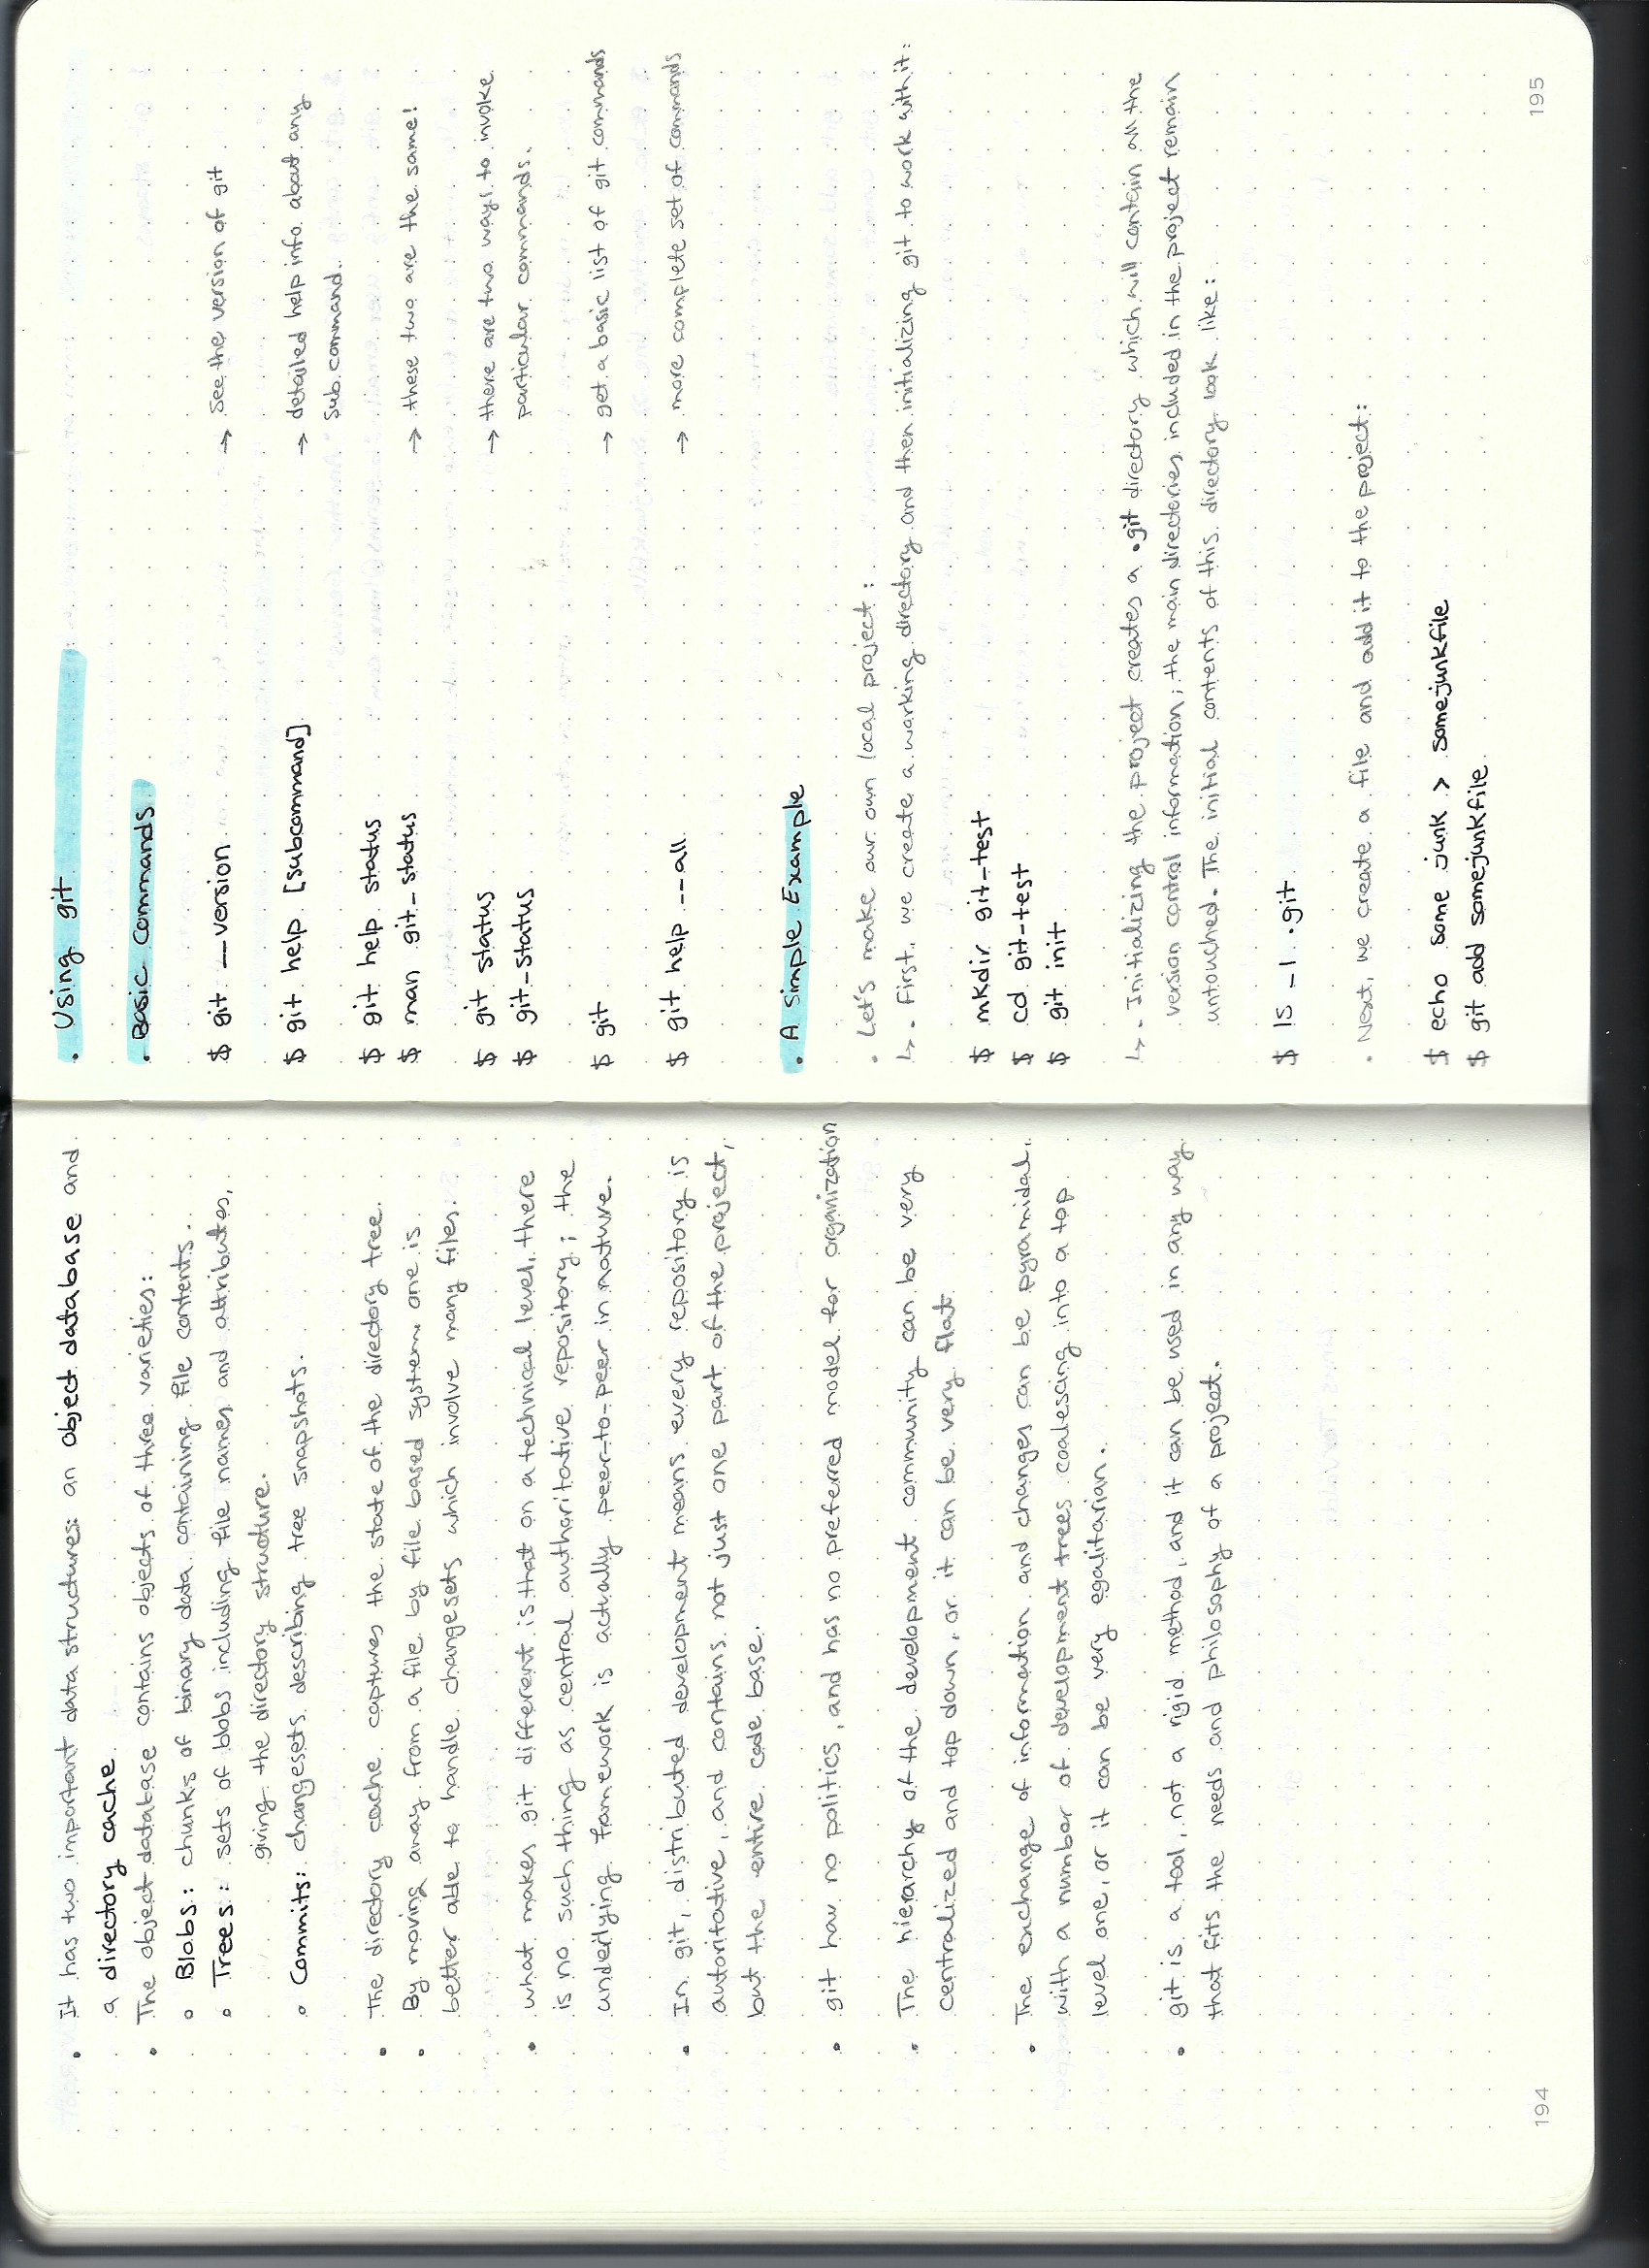 • It has two important data structures: an object database and
a directory cache.
• The object database contains objects of three varieties:
∘ Blobs: chunks of binary data containing file contents.
∘ Trees: sets of blobs including file names and attributes,
giving the directory structure.
∘ Commits: changesets describing tree snapshots.
• The directory cache captures the state of the directory tree.
• By moving away from a file by file based system, one is
better able to handle changesets which involve many files.
• what makes git different is that on a technical level, there
is no such thing as central authoritative repository; the
underlying framework is actually peer-to-peer in nature.
• In git, distributed development means every repository is
autoritative, and contains not just one part of the project,
but the entire code base.
• git has no politics, and has no preferred model for organization
• The hierarchy of the development community can be very
centralized and top down, or it can be very flat.
• The exchange of information and changes can be pyramidal,
with a number of development trees coalescing into a top
level one, or it can be very egalitarian.
• git is a tool, not a rigid method, and it can be used in any way
that fits the needs and philosophy of a project.
194
• Using git
• Basic Commands
$ git --version → see the version of git
$ git help [subcommand] → detailed help info about any
subcommand.
$ git help status
$ man git-status → these two are the same!
$ git status → there are two ways to invoke
$ git-status particular commands.
$ git → get a basic list of git commands
$ git help --all → more complete set of commands
• A Simple Example
• Let's make our own local project:
↳ • First, we create a working directory and then initializing git to work with it:
$ mkdir git-test
$ cd git-test
$ git init
↳ • Initializing the project creates a .git directory which will contain all the
version control information; the main directories included in the project remain
untouched. The initial contents of this directory look like:
$ ls -l .git
• Next, we create a file and add it to the project:
$ echo some junk > somejunkfile
$ git add somejunkfile
195